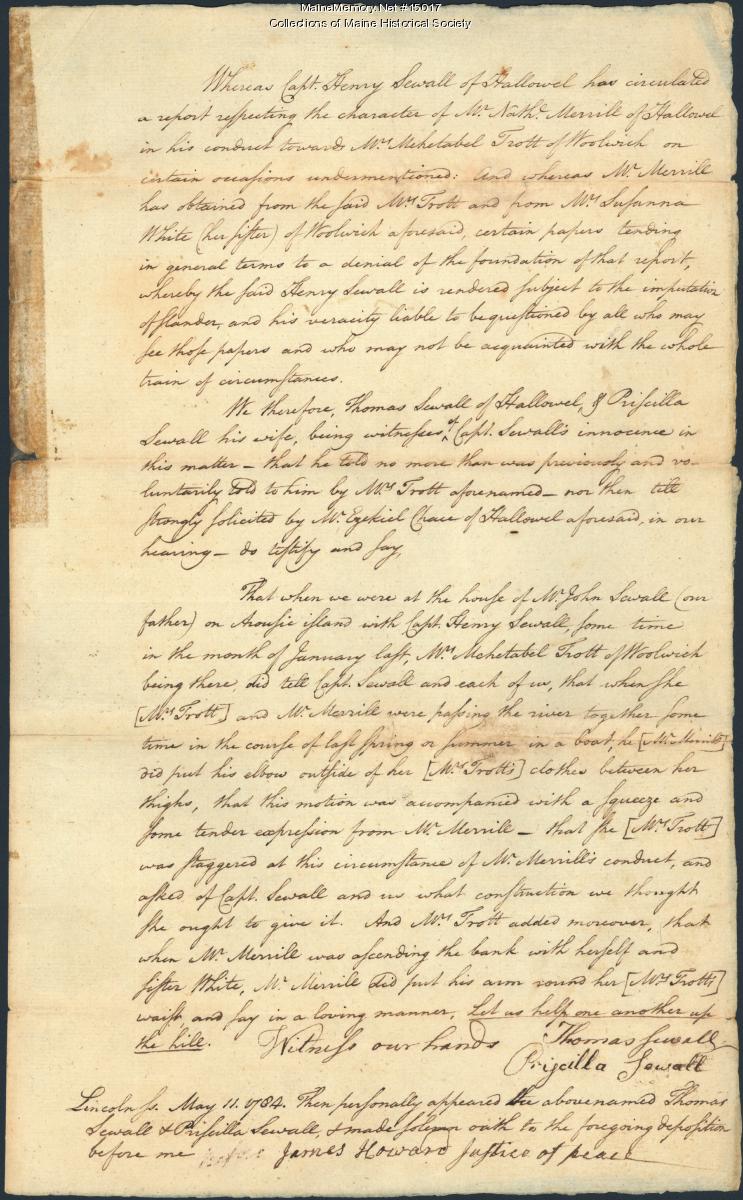 MaineMemory.Net #15017
Collections of Maine Historical Society
Whereas Capt. Henry Sewall of Hallowel has circulated
a report respecting the character of Mr. Nathl. Merrill of Hallowel
in his conduct towards Mrs. Mehetabel Trott of Woolwich on
certain occasions undermentioned: And whereas Mr. Merrill
has obtained from the said Mrs. Trott and from Mrs. Susanna
White (her sister) of Woolwich aforesaid, certain papers tending
in general terms to a denial of the foundation of that report,
whereby the said Henry Sewall is rendered subject to the imputation
of slander, and his veracity liable to be questioned by all who may
see those papers and who may not be acquainted with the whole
train of circumstances.
We therefore, Thomas Sewall of Hallowel, & Priscilla
Sewall his wife, being witnesses of Capt. Sewall's innocence in
this matter — that he told no more than was previously and vo-
luntarily told to him by Mrs. Trott aforenamed — nor then till
strongly solicited by Mr. Ezekiel Chace of Hallowel aforesaid, in our
hearing — do testify and say,
That when we were at the house of Mr. John Sewall (our
father) on Arousic island with Capt. Henry Sewall, some time
in the month of January last, Mrs. Mehetabel Trott of Woolwich
being there, did tell Capt. Sewall and each of us, that when she
[Mrs. Trott] and Mr. Merrill were passing the river together some
time in the course of last spring or summer in a boat, he [Mr. Merrill]
did put his elbow outside of her [Mrs. Trott's] clothes between her
thighs, that this motion was accompanied with a squeeze and
some tender expression from Mr. Merrill — that she [Mrs. Trott]
was staggered at this circumstance of Mr. Merrill's conduct, and
asked of Capt. Sewall and us what construction we thought
she ought to give it. And Mrs. Trott added moreover, that
when Mr. Merrill was ascending the bank with herself and
sister White, Mr. Merrill did put his arm round her [Mrs. Trotts]
waist, and say in a loving manner, Let us help one another up
the hill. Witness our hands Thomas Sewall
Priscilla Sewall
Lincoln ss. May 11. 1784. Then personally appeared the abovenamed Thomas
Sewall & Priscilla Sewall, & made solemn oath to the foregoing deposition
before me James Howard Justice of peace